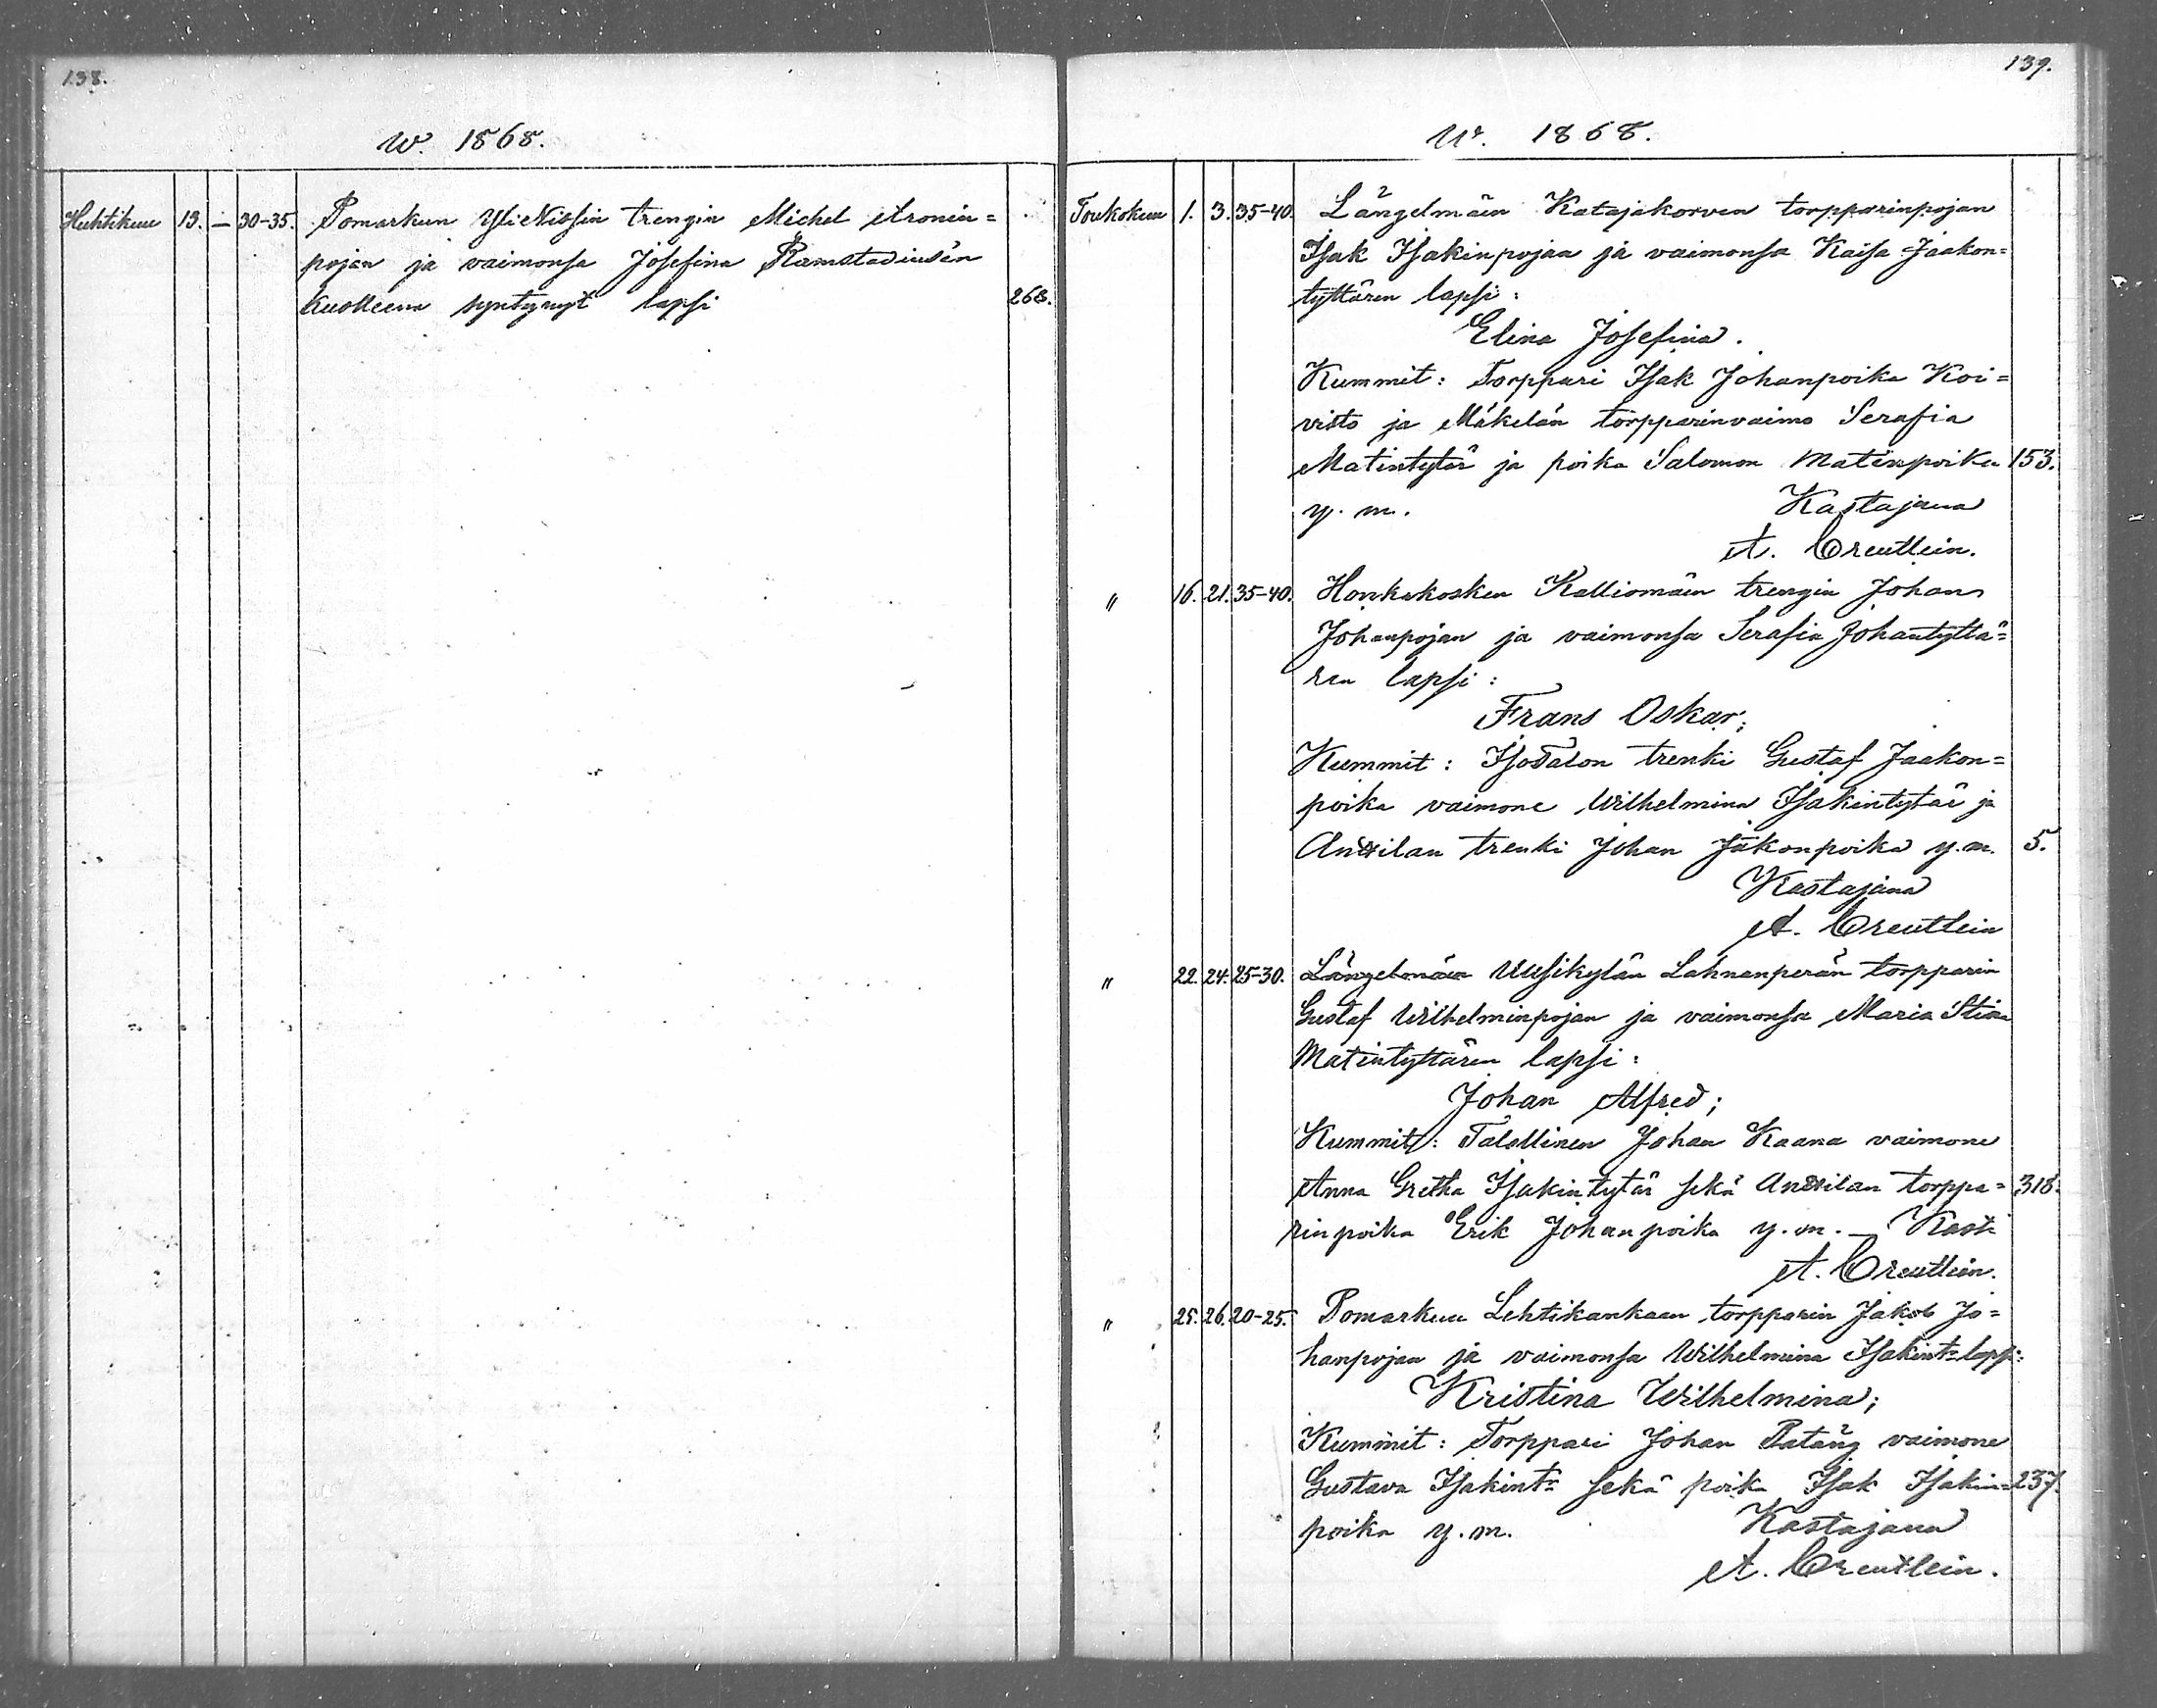 138.
w. 1868.
Huhtikuu 13. — 30-35. Pomarkun YliNissin trengin Michel Aronin=
pojan ja vaimonsa Josefina Ramstadiusen
kuolleena syntynyt lapsi 268.
139.
w. 1868.
Toukokuu 1. 3. 35-40. Längelmäen Katajakorven torpparinpojan
Isak Isakinpojan ja vaimonsa Kaisa Jaakon=
tyttären lapsi:
Elina Josefina.
Kummit: Torppari Isak Johanpoika Koi=
visto ja Mäkelän torpparinvaimo Serafia
Matintytär ja poika Salomon Matinpoika 153.
y. m. Kastajana
A. Creutlein.
" 16. 21. 35-40. Honkakosken Kalliomäen trengin Johan
Johanpojan ja vaimonsa Serafia Johantyttä=
ren lapsi:
Frans Oskar;
Kummit: IsoTalon trenki Gustaf Jaakon=
poika vaimone Wilhelmina Isakintytär ja
Anttilan trenki Johan Jäkonpoika y. m. 5.
Kastajana
A. Creutlein
" 22. 24. 25-30. Längelmäen Uusikylän Lahnanperän torpparin
Gustaf Wilhelminpojan ja vaimonsa Maria Stina
Matintyttären lapsi:
Johan Alfred;
Kummit: Talollinen Johan Kaana vaimone
Anna Gretha Isakintytär sekä Anttilan torppa= 318.
rinpoika Erik Johanpoika y. m. — Kast:
A. Creutlein.
" 25. 26. 20-25. Pomarkun Lehtikankaan torpparin Jakob Jo=
hanpojan ja vaimonsa Wilhelmina Isakint: lapsi:
Kristina Wilhelmina;
Kummit: Torppari Johan Patäng vaimone
Gustava Isakintr sekä poika Isak Isakin= 237.
poika y. m. Kastajana
A. Creutlein.